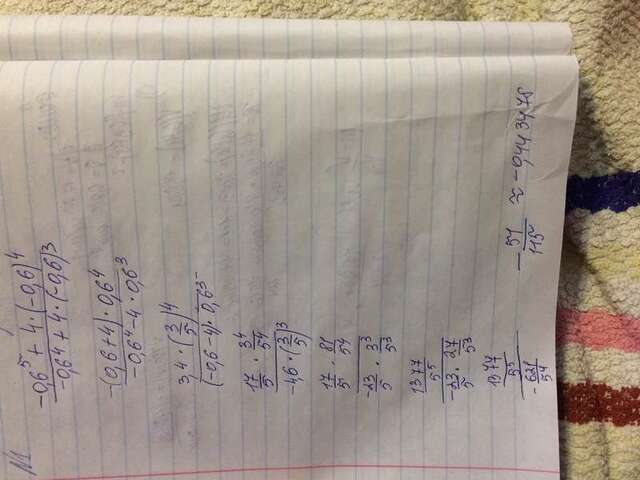 N1
-0,6^5 + 4·(-0,6)^4 / -0,6^4 + 4·(-0,6)^3
-(0,6+4)·0,6^4 / -0,6^4 - 4·0,6^3
3,4·(3/5)^4 / (-0,6-4)·0,6^3
17/5 · 3^4/5^4 / -4,6·(3/5)^3
17/5 · 81/54 / -23/5 · 3^3/5^3
1377/5^5 / -23/5 · 27/5^3
1377/5^5 / -621/5^4 - 51/115 ≈ -0,443478